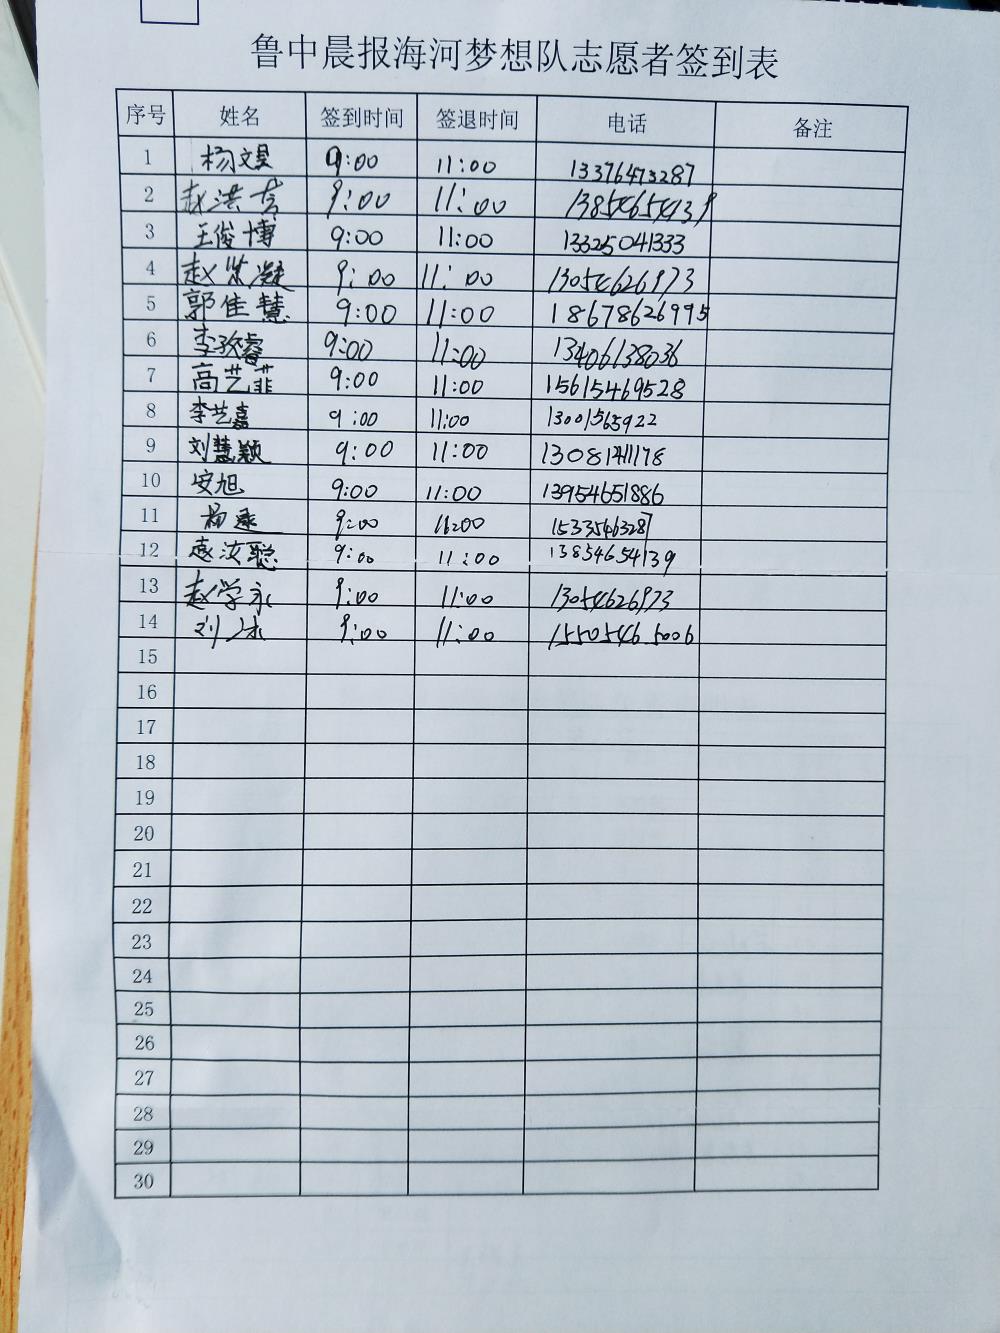 鲁中晨报海河梦想队志愿者签到表
序号 姓名 签到时间 签退时间 电话 备注
1 杨文昊 9:00 11:00 13376473287
2 赵洪 9:00 11:00 13854654139
3 王俊博 9:00 11:00 13325041333
4 赵紫凝 9:00 11:00 13054626973
5 郭佳慧 9:00 11:00 18678626995
6 李孜睿 9:00 11:00 13406138036
7 高艺菲 9:00 11:00 15615469528
8 李艺嘉 9:00 11:00 13001565922
9 刘慧颖 9:00 11:00 13081411178
10 安旭 9:00 11:00 13954651886
11 杨 9:00 11:00 15335463287
12 汝聪 9:00 11:00 13854654139
13 赵学永 9:00 11:00 13054626973
14 刘 9:00 11:00 15505465006
15
16
17
18
19
20
21
22
23
24
25
26
27
28
29
30